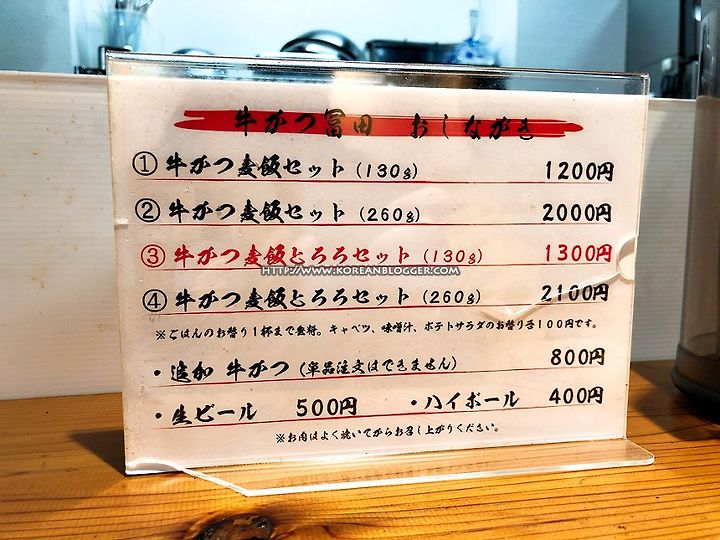 牛かつ冨田 おしながき
① 牛かつ麦飯セット (130g) 1200円
② 牛かつ麦飯セット (260g) 2000円
③ 牛かつ麦飯とろろセット (130g) 1300円
HTTP://WWW.KOREANBLOGGER.COM
④ 牛かつ麦飯とろろセット (260g) 2100円
※ごはんのお替り1杯まで無料。キャベツ、味噌汁、ポテトサラダのお替り各100円です。
・追加 牛かつ (単品注文はできません) 800円
・生ビール 500円 ・ハイボール 400円
※お肉はよく焼いてからお召し上がりください。